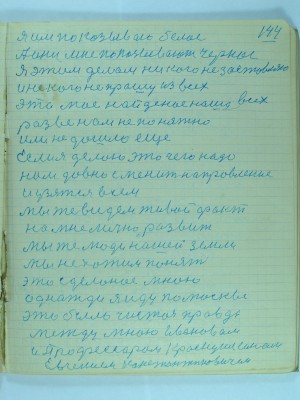 144
Я им показываю белое
А они мне показывают черное
Я этим делом никого не заставляю
и некого не прашу из всех
это мое найденое нашо всих
разве нам не понятно
или не дошло еще
Если я делаю это чего надо
нам довно сменить направление
и узятся всем
мы же видем живой факт
на мне лично развит
мы же люди нашей земли
мы не хотим понят
это сделоное мною
однажди я иду по москве
это быль чистая правда
между мною Ивановам
и Профессарам
Евгением Константиновичем